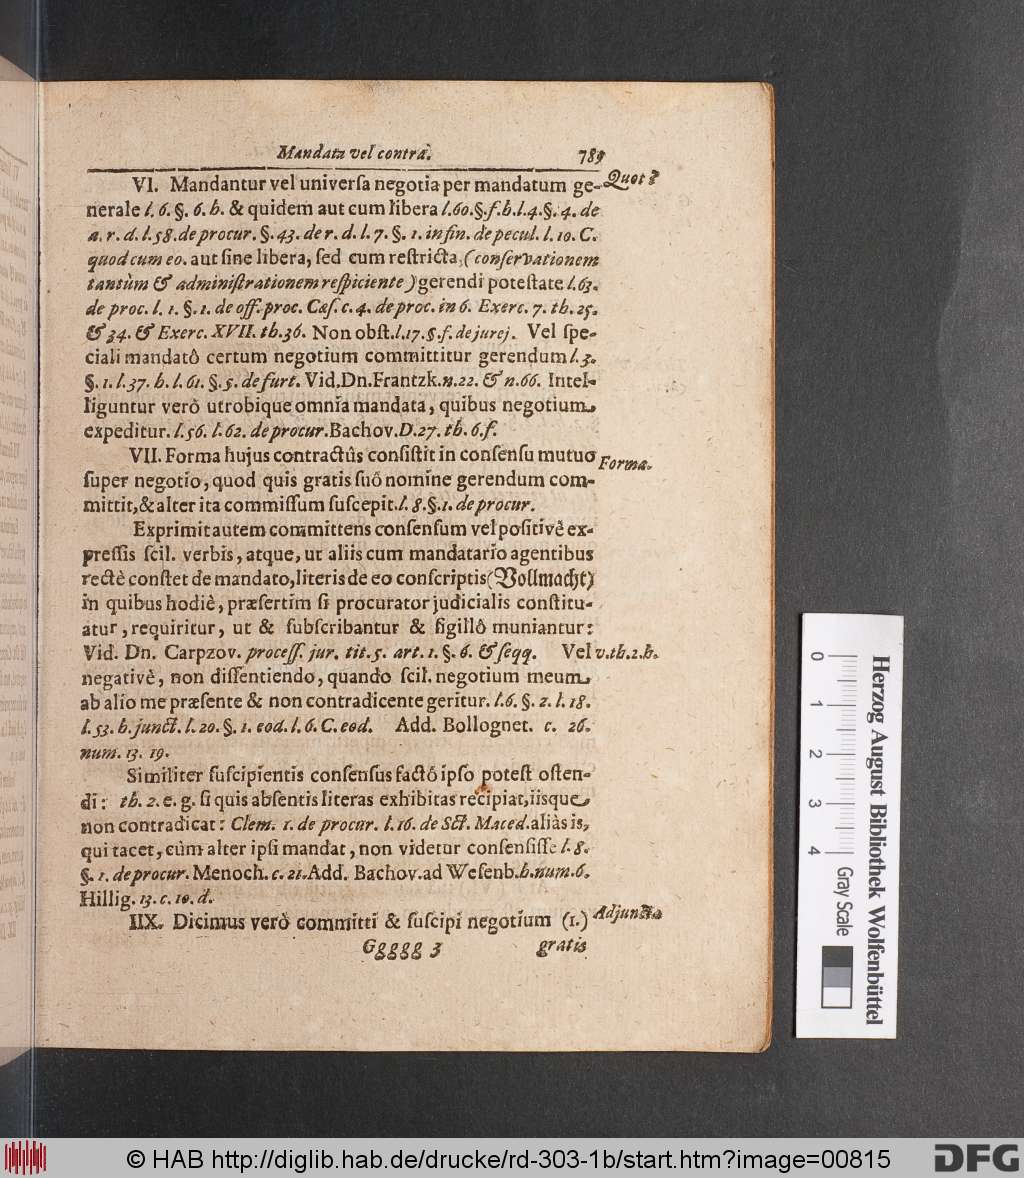 Mandata vel contrà. 789
VI. Mandantur vel universa negotia per mandatum ge- Quot?
nerale l. 6. §. 6. h. & quidem aut cum libera l. 60. §. f. h. l. 4. §. 4. de
a. r. d. l. 58. de procur. §. 43. de r. d. l. 7. §. 1. in fin. de pecul. l. 10. C.
quod cum eo. aut sine libera, sed cum restricta, (conservationem
tantùm & administrationem respiciente) gerendi potestate l. 63.
de proc. l. 1. §. 1. de off. proc. Cæs. c. 4. de proc. in 6. Exerc. 7. th. 25.
& 34. & Exerc. XVII. th. 36. Non obst. l. 17. §. f. de jurej. Vel spe-
ciali mandatô certum negotium committitur gerendum l. 3.
§. 1. l. 37. h. l. 61. §. 5. de furt. Vid. Dn. Frantzk. n. 22. & n. 66. Intel-
liguntur verò utrobique omnia mandata, quibus negotium
expeditur. l. 56. l. 62. de procur. Bachov. D. 27. th. 6. f.
VII. Forma hujus contractûs consistit in consensu mutuo Forma.
super negotio, quod quis gratis suô nomine gerendum com-
mittit, & alter ita commissum suscepit. l. 8. §. 1. de procur.
Exprimit autem committens consensum vel positivè ex-
pressis scil. verbis, atque, ut aliis cum mandatario agentibus
rectè constet de mandato, literis de eo conscriptis (Vollmacht)
in quibus hodiè, præsertim si procurator judicialis constitu-
atur, requiritur, ut & subscribantur & sigillô muniantur:
Vid. Dn. Carpzov. process. jur. tit. 5. art. 1. §. 6. & seqq. Vel v. th. 2. h.
negativè, non dissentiendo, quando scil. negotium meum
ab alio me præsente & non contradicente geritur. l. 6. §. 2. l. 18.
l. 53. h. junct. l. 20. §. 1. eod. l. 6. C. eod. Add. Bollognet. c. 26.
num. 13. 19.
Similiter suscipientis consensus factô ipso potest osten-
di: th. 2. e. g. si quis absentis literas exhibitas recipiat, iisque
non contradicat: Clem. 1. de procur. l. 16. de Sct. Maced. aliàs is,
qui tacet, cùm alter ipsi mandat, non videtur consensisse l. 8.
§. 1. de procur. Menoch. c. 21. Add. Bachov. ad Wesenb. h. num. 6.
Hillig. 13. c. 10. d.
IIX. Dicimus verò committi & suscipi negotium (1.) Adjuncta
Ggggg 3 gratis
0 1 2 3 4
Gray Scale
Herzog August Bibliothek Wolfenbüttel
© HAB http://diglib.hab.de/drucke/rd-303-1b/start.htm?image=00815
DFG